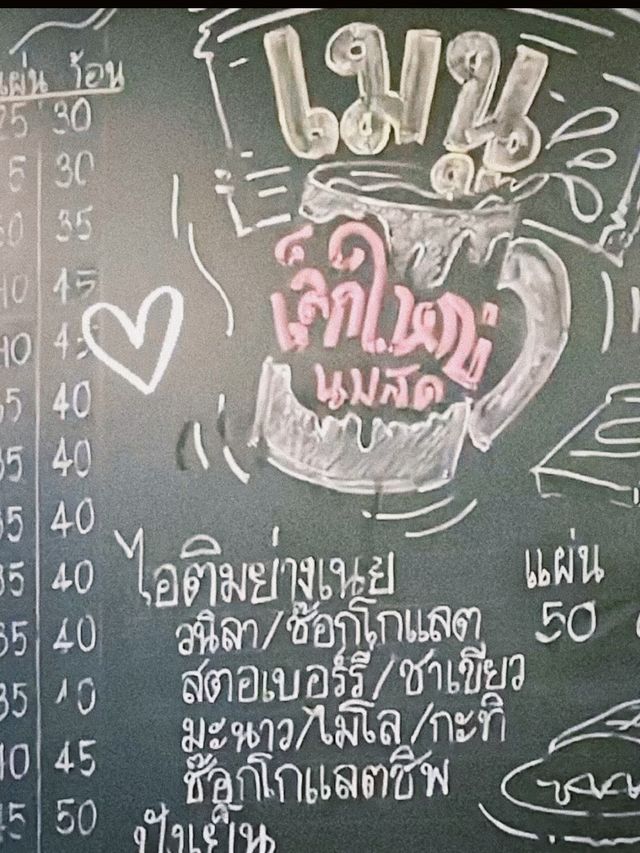 แผ่น ร้อน
25 30
5 30
50 35
40 45
40 45
35 40
35 40
35 40
35 40
35 40
35 40
40 45
45 50
เมนู
เล็กใหญ่
นมสด
ไอติมย่างเนย แผ่น
วนิลา/ช๊อกโกแลต 50
สตอเบอร์รี่/ชาเขียว
มะนาว/ไมโล/กะทิ
ช๊อกโกแลตชิพ
ปังเย็น